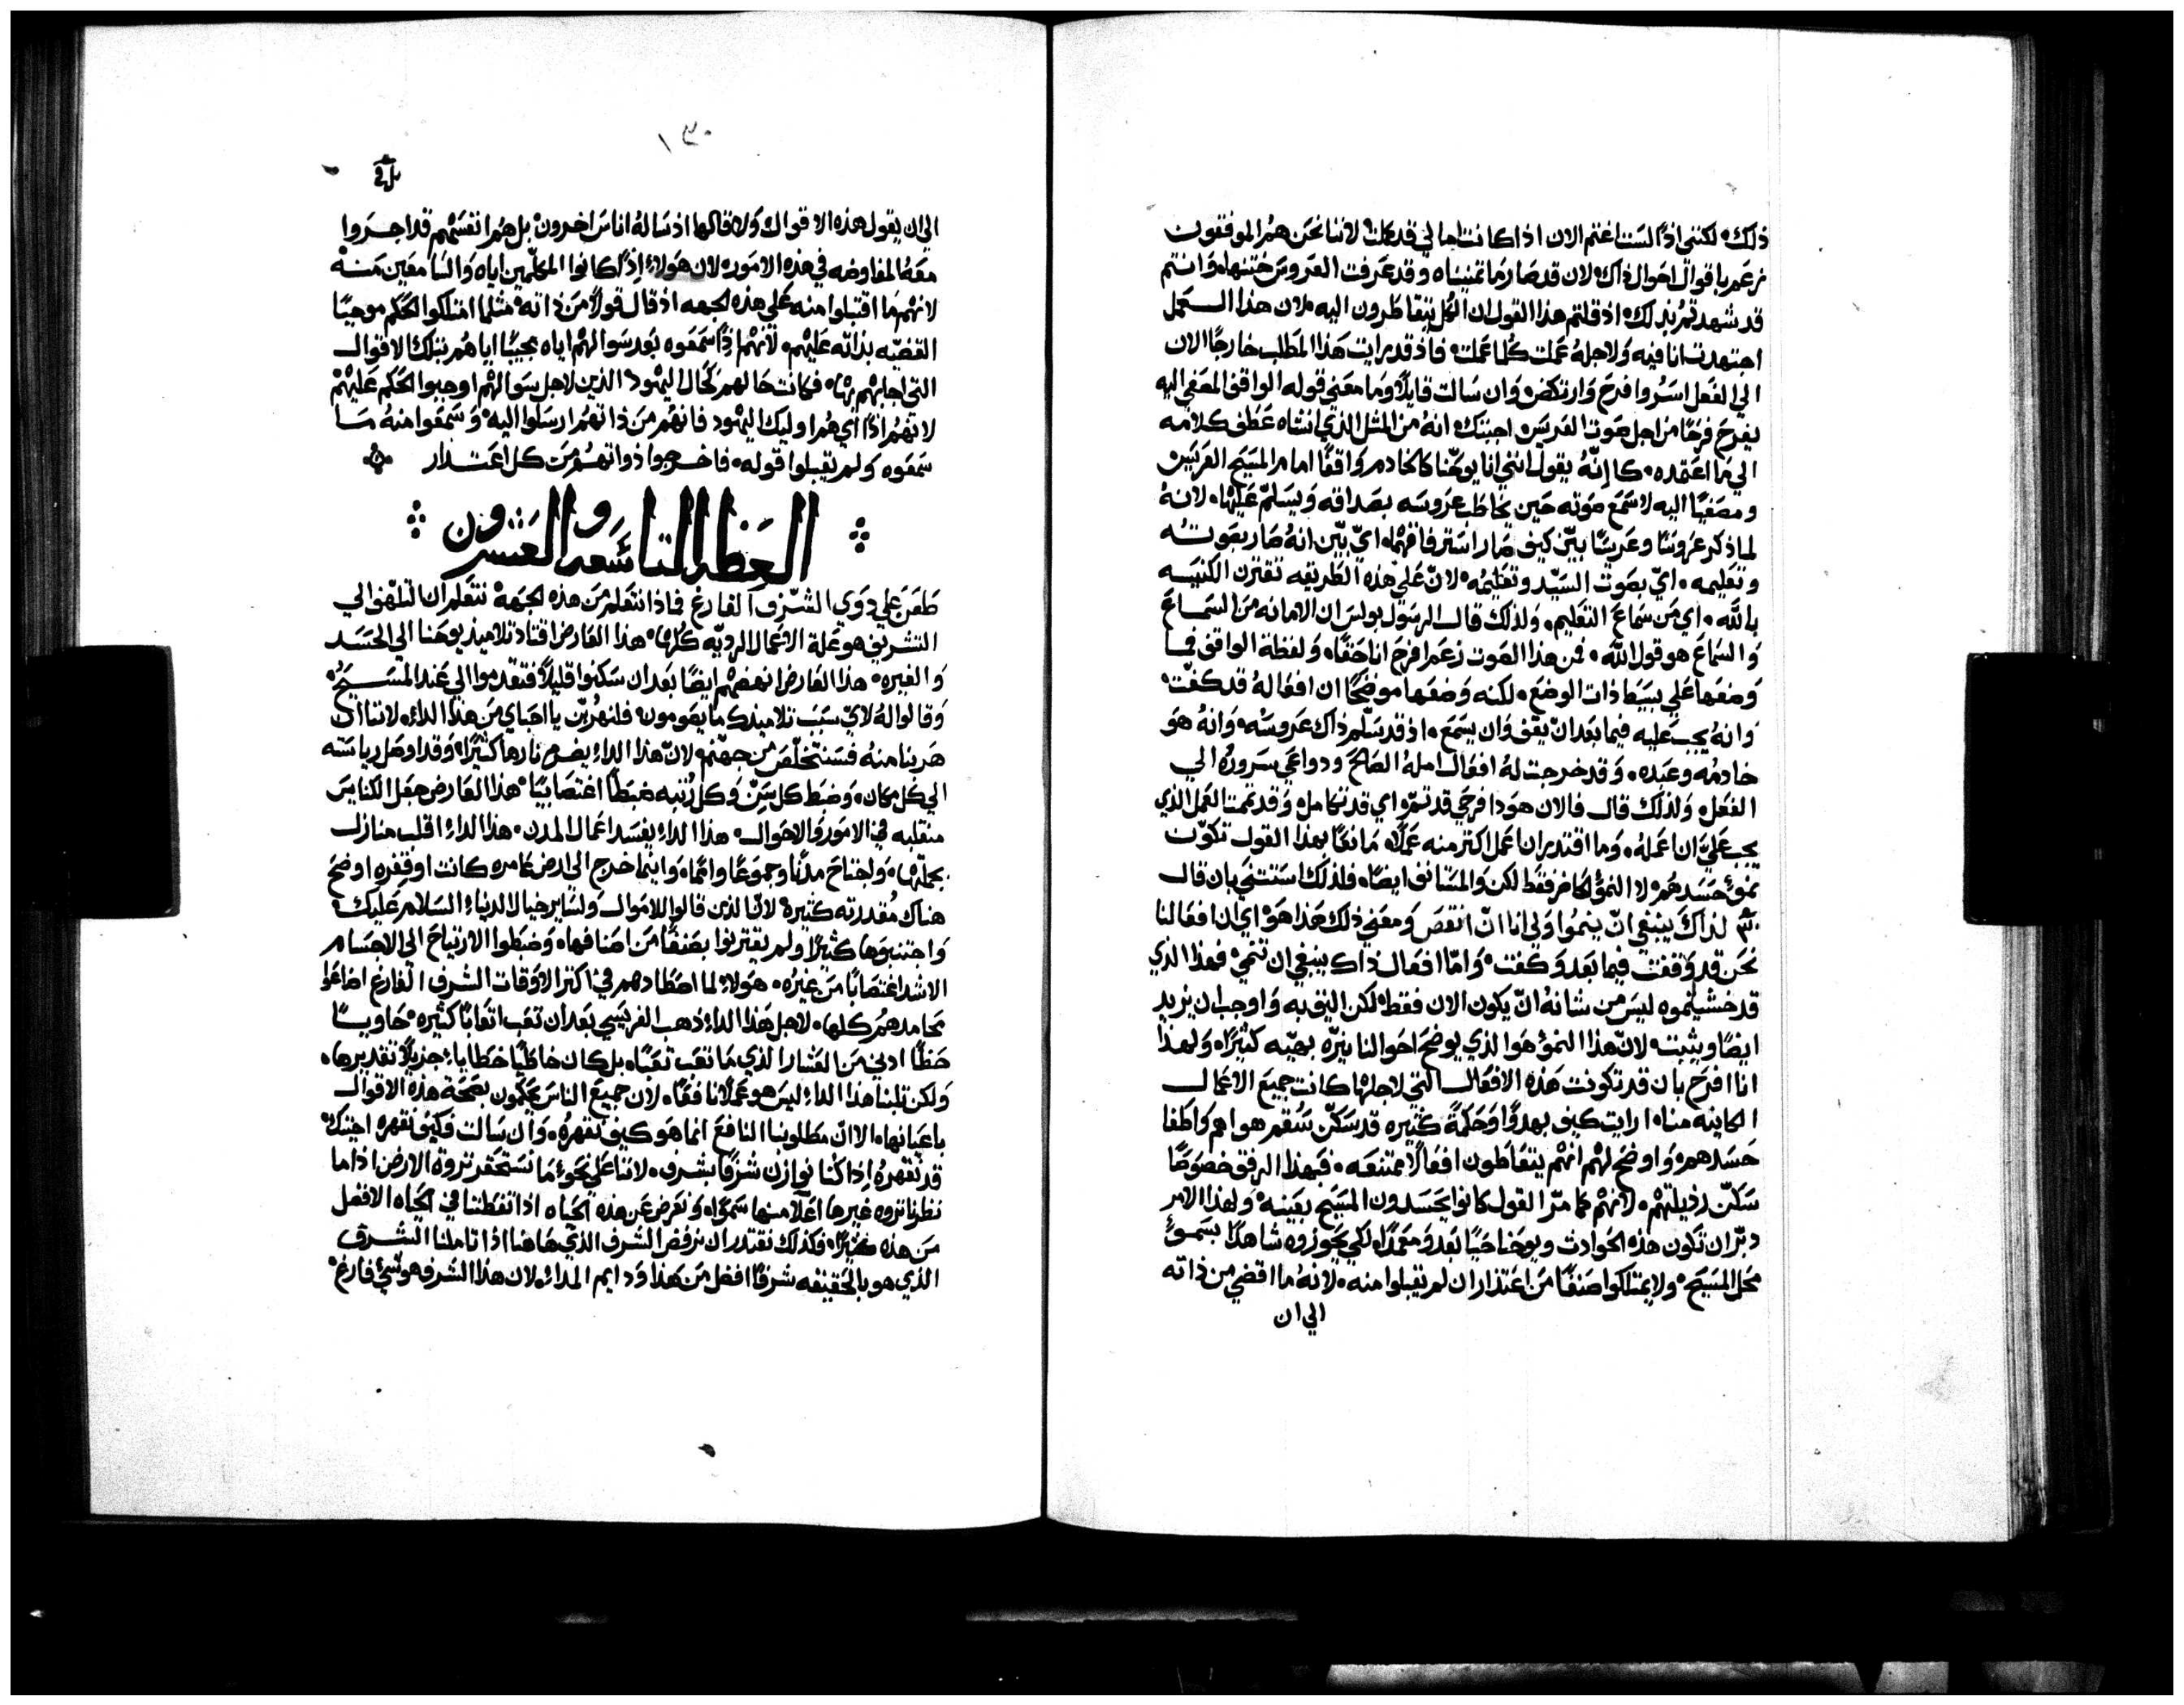 ذلك. لكنني اذًا لست اغتم الان اذا كانت امالي قد كملت لاننا نحن هم الموفقون
نزعم باقوال احوال ذاك. لان قد صار ما تمنيناه وقد عرفت العروس ختنها. وانتم
قد شهدتم بذلك. اذ قلتم هذا القول ان الكل يتقاطرون اليه. لان هذا العمل
اجتهدت انا فيه ولاجله عملت كلما عملت. فاذ قد رايت هذا المطلب خارجًا الان
الي الفعل اسر وافرح وارتكض. وان سالت قايلًا وما معني قوله الواقف المصغي اليه
يفرح فرحًا من اجل صوت العريس. اجبتك انه من المثل الذي انشاه عطف كلامه
الي ما اعتمده. كانه يقول انني انا يوحنا كالخادم واقفًا امام المسيح العريس
ومصغيًا اليه لاسمع صوته حين يخاطب عروسه بصداقه ويسلم عليها. لانه
لما ذكر عروسًا وعريسًا بين كيف صار استرفافهما. اي بين انه صار بصوته
وتعليمه. اي بصوت السيد وتعليمه. لان علي هذه الطريقه تقترن الكنيسه
بالله. اي من سماع التعليم. ولذلك قال الرسول بولس ان الامانه من السماع
والسماع هو قول الله. فمن هذا الصوت زعم افرح انا حقًا. ولفظة الواقف فما
وضعها علي بسيط ذات الوضع. لكنه وضعها موضحًا ان افعاله قد كفت.
وانه يجب عليه فيما بعد ان يقف وان يسمع. اذ قد سلم ذاك عروسه. وانه هو
خادمه وعبده. وقد خرجت له افعال امله الصالح ودواعي سروره الي
الفعل. ولذلك قال فالان هوذا فرحي قد تم. اي قد تكامل. وقد تمت العمل الذي
يجب علي ان اعمله. وما اقتدر ان اعمل اكثر منه عملًا. مانعًا بهذا القول تكون
نمو حسدهم لا النمو الحاضر فقط لكن والمستانف ايضًا. فلذلك استثني بان قال
لذاك ينبغي ان ينموا ولي انا ان انقص ومعني ذلك هذا هو اي ان افعالنا
نحن قد وقفت فيما بعد وكفت. واما افعال ذاك ينبغي ان تنمي. فهذا الذي
قد خشيتموه ليس من شانه ان يكون الان فقط. لكن اليق به واوجب ان يزيد
ايضًا ويثبت. لان هذا النمو هو الذي يوضح احوالنا بيره بهيه كثيرًا. ولهذا
انا افرح بان قد تكونت هذه الافعال التي لاجلها كانت جميع الاعمال
الكاينه منا. ارايت كيف بهدوًا وحكمة كثيره قد سكن سقم هواهم واطفا
حسدهم. واوضح لهم انهم يتعاطون افعالًا ممتنعه. فبهذا الرفق خصوصًا
سكن رذيلتهم. لانهم كما مر القول كانوا يحسدون المسيح بعينه. ولهذا الامر
دبر ان تكون هذه الحوادث ويوحنا حيًا بعد ومعمدًا. لكي يحوزوه شاهدًا بسمو
محل المسيح. ولا يمتلكوا صنفًا من اعتذار ان لم يقبلوا منه. لانه ما افضي من ذاته
الي ان
١٣٠
الي ان يقول هذه الاقوال ولا قالها اذ ساله اناس اخرون. بل هم انفسهم قد اجروا
معه المفاوضه في هذه الامور. لان هولاء اذًا كانوا المكلمين اياه والسامعين منه
لانهم ما اقتبلوا منه علي هذه الجهه اذ قال قولًا من ذاته. مثلما امتلكوا الحكم موجبًا
القضيه بذاته عليهم. لانهم اذًا سمعوه بعد سوالهم اياه مجيبًا اياهم بتلك الاقوال
التي اجابهم بها. فكانت حالهم كحال اليهود الذين لاجل سوالهم اوجبوا الحكم عليهم
لانهم اذًا اي هم اوليك اليهود فانهم من ذاتهم ارسلوا اليه. وسمعوا منه ما
سمعوه ولم يقبلوا قوله. فاخرجوا ذواتهم من كل اعتذار
العظه التاسعه والعشرون
طعن علي ذوي الشرف الفارغ فاذا نتعلم من هذه الجهة نتعلم ان التلهف الي
التشريف هو علة الاعمال الرديه كلها. هذا العارض اقتاد تلاميذ يوحنا الي الحسد
والغيره. هذا العارض انهضهم ايضًا بعد ان سكنوا قليلًا. فتقدموا الي عند المسيح
وقالوا له لاي سبب تلاميذك ما يصومون. فلنهربن يا احباي من هذا الداء. لاننا ان
هربنا منه فسنتخلص من جهنم. لان هذا الداء يضرم نارها كثيرًا. وقد اوصل رياسته
الي كل مكان. وضبط كل سن وكل رتبه ضبطًا اغتصابيًا. هذا العارض جعل الكنايس
منقلبه في الامور والاحوال. هذا الداء يفسد اعمال المدن. هذا الداء اقلب منازل
بجملتها. واجتاح مدنًا وجموعًا وامما. واينما خرج الي ارض عامره كانت او قفره اوضح
هناك مقدرته كثيرة. لان الذين قالوا للاموال ولساير خيال الدنيا السلام عليك.
واجتنبوها كثيرًا ولم يقترنوا بصنف من اصنافها. وضبطوا الارتياح الي الاجسام
الاشد اغتصابًا من غيره. هولاء لما اصطادهم في اكثر الاوقات الشرف الفارغ اضاعوا
محامدهم كلها. لاجل هذا الداء ذهب الفريسي بعد ان تعب اتعابًا كثيره. حاويًا
حظًا ادني من العشار الذي ما تعب تعبًا. بل كان خاطيًا خطايا جزيلًا تقديرها.
ولكن ثلبنا هذا الداء ليس هو عملًا نافعًا. لان جميع الناس يحكمون بصحة هذه الاقوال
باعيانها. الا ان مطلوبنا النافع انما هو كيف نقهره. وان سالت وكيف نقهره اجبتك
قد نقهره اذا كنا نوازن شرفًا بشرف. لاننا علي نحو ما نستحقر ثروة الارض اذا ما
نظرنا ثروه غيرها اعلا منها سموًا. ونعرض عن هذه الحياه اذا تفطنا في الحياه الافضل
من هذه كثيرًا. فكذلك نقتدر ان نرفض الشرف الذي هاهنا اذا تاملنا الشرف
الذي هو بالحقيقه شرفًا افضل من هذا ودايم المدا. لان هذا الشرف هو شي فارغ